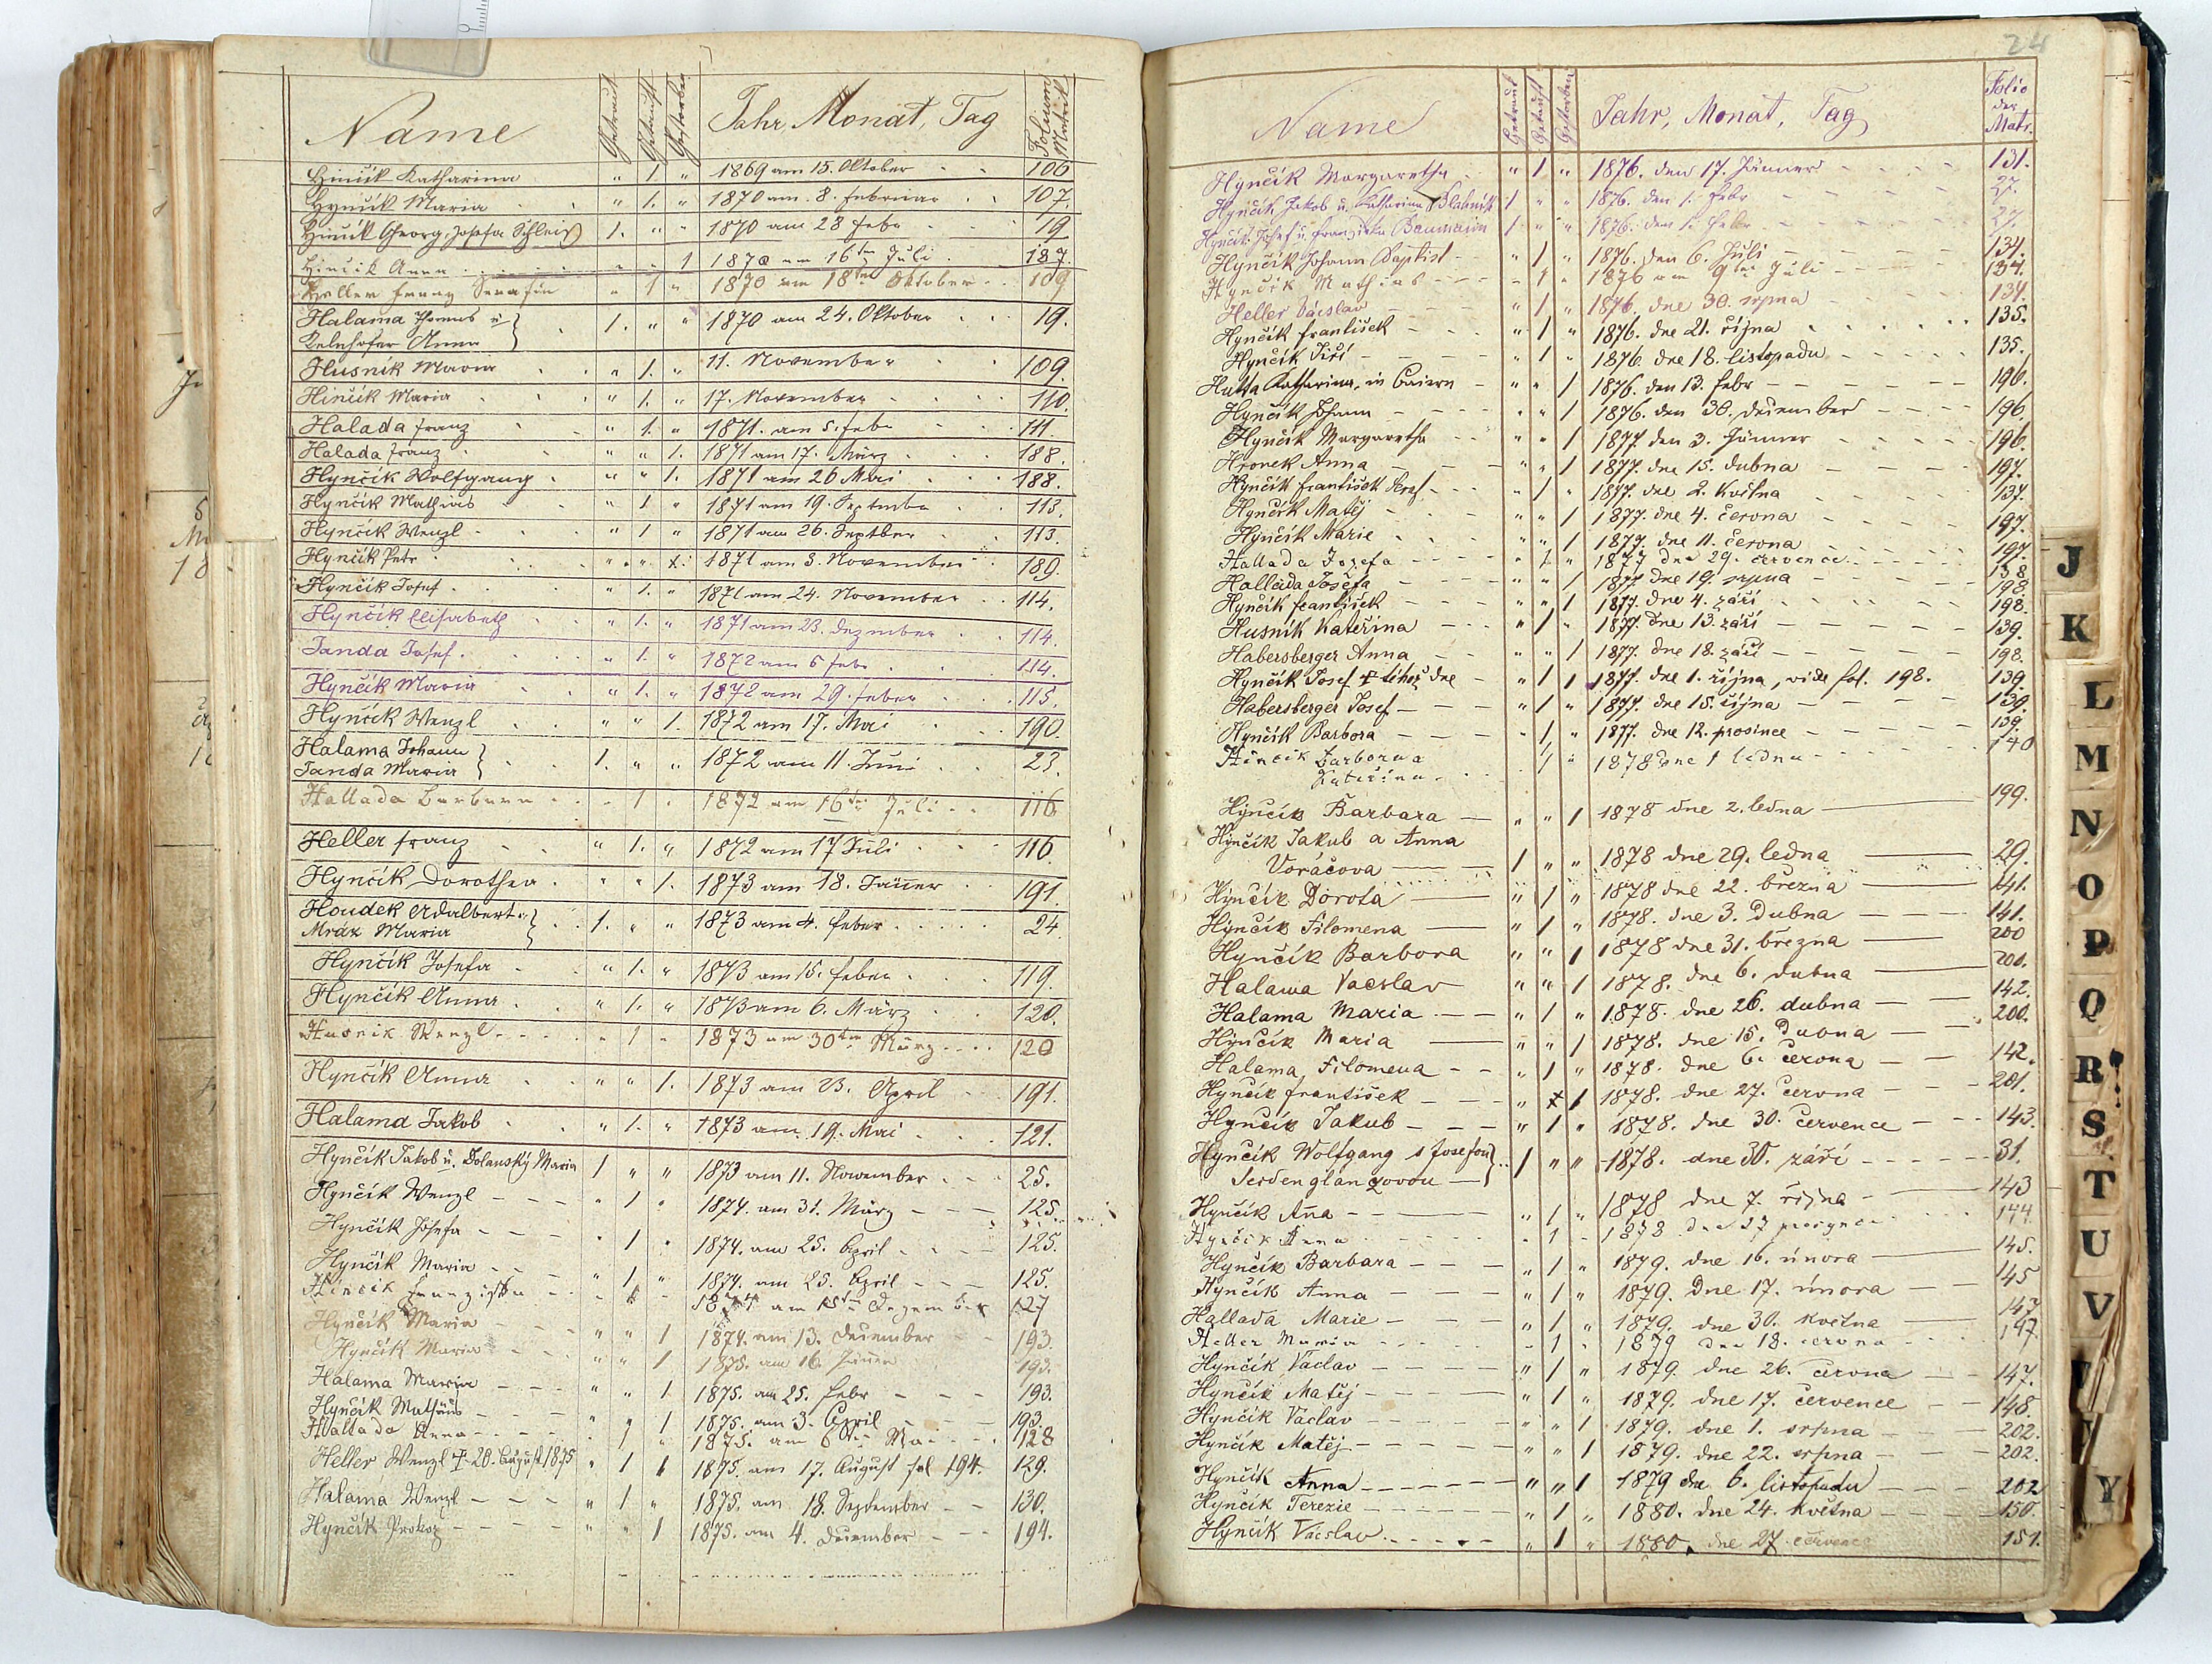 Name Getraut Getauft Gestorben Jahr, Monat, Tag Folium Matrik
Hinčik Katharina " 1. " 1869 am 15. Oktober 106
Hynčik Maria " 1. " 1870 am 8. Februar 107.
Hinčik Georg, Josefa Schleis 1. " " 1870 am 28 Febr 19
Hinčik Anna " " 1 1870 am 16ten Juli 187.
Heller Franz Serafin " 1 " 1870 am 18ten Oktober 109
Halama Thomas u
Kelnhofer Anna } 1. " " 1870 am 24. Oktober 19.
Husnik Maria " 1. " 11. November 109.
Hinčik Maria " 1. " 17. November 110.
Halada Franz " 1. " 1871. am 5. Febr 111.
Halada Franz " " 1. 1871 am 17. März 188.
Hynčik Wolfgang " " 1. 1871 am 26 Mai 188.
Hynčik Mathias " 1 " 1871 am 19. Septembr 113.
Hynčik Wenzl " 1 " 1871 am 26. Septber 113.
Hynčik Petr " " 1. 1871 am 3. November 189.
Hynčik Josef " 1. " 1871 am 24. November 114.
Hynčik Elisabeth " 1. " 1871 am 23. Dezember 114.
Janda Josef " 1. " 1872 am 5 Febr 114.
Hynčik Maria " 1. " 1872 am 29. Feber 115.
Hynčik Wenzl " " 1. 1872 am 17. Mai 190.
Halama Johann
Janda Maria } 1. " " 1872 am 11. Juni 23.
Hallada Barbara " 1 " 1872 am 16ten Juli 116
Heller Franz " 1. " 1872 am 17 Juli 116.
Hynčik Dorothea " " 1. 1873 am 18. Jänner 191.
Houdek Adalbert
Mráz Maria } 1. " " 1873 am 4. Feber 24
Hynčik Josefa " 1. " 1873 am 15. Feber 119.
Hynčik Anna " 1. " 1873 am 6. März 120.
Husnik Wenzl " 1 " 1873 am 30ten März 120
Hynčik Anna " " 1. 1873 am 23. April 191.
Halama Jakob " 1. " 1873 am 19. Mai 121.
Hynčik Jakob u. Dolanský Maria 1 " " 1873 am 11. November 25.
Hynčik Wenzl " 1 " 1874. am 31. März 125.
Hynčik Josefa " 1 " 1874. am 25. April 125.
Hynčik Maria " 1 " 1874. am 25. April 125.
Hinčik Franziska 1874 am 15ten Dezember 127
Hynčik Maria " " 1 1874. am 13. December 193.
Hynčik Maria " " 1 1875. am 16. Jänner 193.
Halama Maria " " 1 1875. am 25. Febr 193.
Hynčik Mathäus " " 1 1875. am 3. April 193.
Hallada Anna " 1 " 1875. am 6ten Mai 128
Heller Wenzl † 20. August 1875 " 1 1 1875. am 17. August fol 194. 129.
Halama Wenzl " 1 " 1875. am 18. September 130.
Hynčik Prokop " " 1 1875. am 4. December 194.
24
Name Getraut Getauft Gestorben Jahr, Monat, Tag Folio der Matr.
Hynčik Margaretha " 1 " 1876. den 17. Jänner 131.
Hynčik Jakob u. Katharina 1 " " 1876. den 1. Febr 27.
Hynčik Josef u. Franziska Baumann 1 " " 1876. den 1. Febr 27.
Hynčik Johann Baptist " 1 " 1876. den 6. Juli 134.
Hynčik Mathias " 1 " 1876 am 9ten Juli 134.
Heller Václav " 1 " 1876. dne 30. srpna 134.
Hynčik František " 1 " 1876. dne 21. října 135.
Hynčik Jiří " 1 " 1876. dne 18. listopadu 135.
Hutta Katharina, in Baiern " " 1 1876. den 13. Febr 196.
Hynčik Johann " " 1 1876. den 30. December 196.
Hynčik Margaretha " " 1 1877. den 3. Jänner 196.
Hronek Anna " " 1 1877. dne 15. dubna 197.
Hynčik František Seraf. " 1 " 1877. dne 2. května 137.
Hynčik Matěj " " 1 1877. dne 4. června 197.
Hynčik Marie " " 1 1877. dne 11. června 197.
Hallada Josefa " 1 " 1877 dne 29. července 138
Hallada Josefa " " 1 1877. dne 19. srpna 198.
Hynčik František " " 1 1877. dne 4. září 198.
Husnik Kateřina " 1 " 1877. dne 13. září 139.
Habersberger Anna " " 1 1877. dne 18. září 198.
Hynčik Josef † téhož dne " 1 1 1877. dne 1. října, vide fol. 198. 139.
Habersberger Josef " 1 " 1877. dne 15. října 139.
Hynčik Barbora " 1 " 1877. dne 12. prosince 139.
Hinčik Barbora
Kateřina " 1 " 1878 dne 1 ledna 140
Hynčík Barbara " " 1 1878 dne 2. ledna 199.
Hynčík Jakub a Anna
Voráčova 1 " " 1878 dne 29. ledna 29.
Hynčík Dorota " 1 " 1878 dne 22. března 141.
Hynčík Filomena " 1 " 1878. dne 3. Dubna 141.
Hynčík Barbora " " 1 1878 dne 31. března 200
Halama Vacslav " " 1 1878. dne 6. dubna 200.
Halama Maria " 1 " 1878. dne 26. dubna 142.
Hynčík Maria " " 1 1878. dne 15. Dubna 200.
Halama Filomena " 1 " 1878. dne 6. června 142.
Hynčík František " 1 1878. dne 27. června 201.
Hynčík Jakub " 1 " 1878. dne 30. července 143.
Hynčík Wolfgang s Josefou
Seidenglanzovou } 1 " " 1878. dne 30. září 31.
Hynčík Anna " 1 " 1878 dne 7. října 143
Hynčik Anna " 1 " 1878 dne 27 prosynce 144
Hynčík Barbara " 1 " 1879. dne 16. února 145.
Hynčík Anna " 1 " 1879. Dne 17. února 145
Hallada Marie " 1 " 1879. dne 30. května 147
Heller Maria " 1 " 1879 dne 18. června 147
Hynčík Václav " 1 " 1879. dne 26. června 147.
Hynčík Matěj " 1 " 1879. dne 17. července 148.
Hynčík Václav " " 1 1879. dne 1. srpna 202.
Hynčík Matěj " " 1 1879. dne 22. srpna 202.
Hynčík Anna " " 1 1879 dne 6. listopadu 202
Hynčík Terezie " 1 " 1880. dne 24. května 150.
Hynčík Vacslav " 1 " 1880. dne 27. července 151.
J
K
L
M
N
O
P
Q
R
S
T
U
V
Y